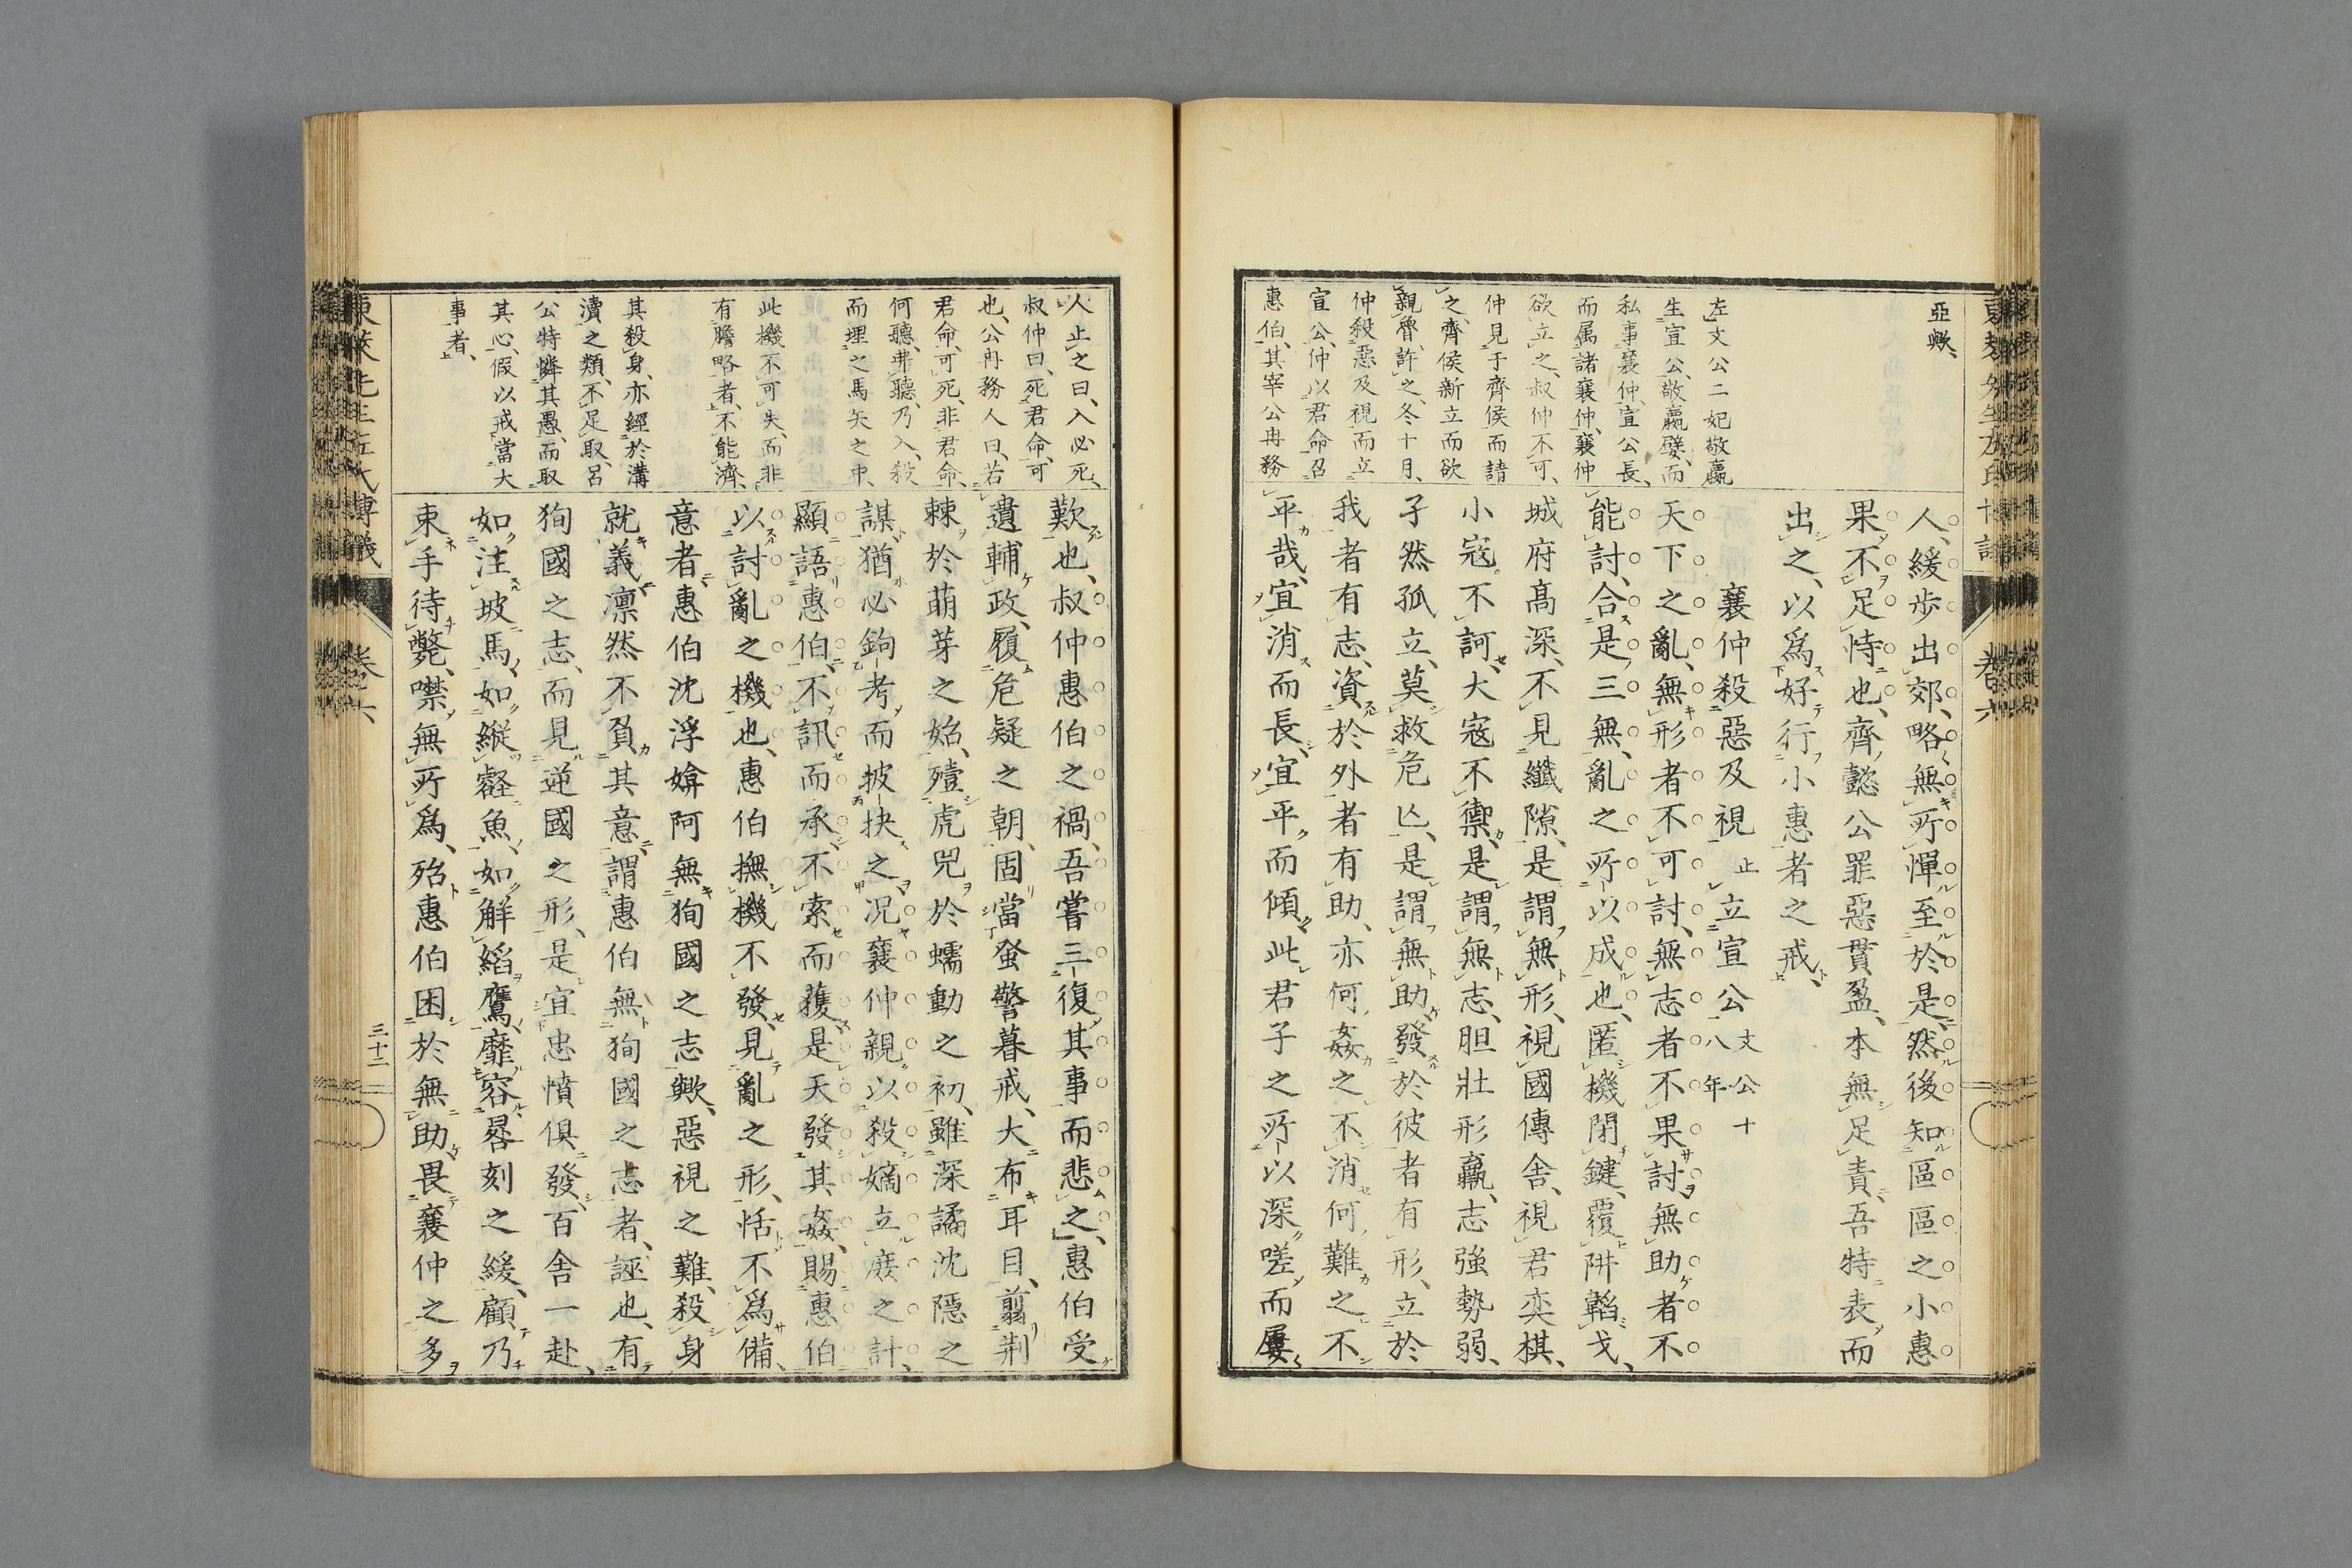 亞歟、
左文公二妃敬嬴
生宣公、敬嬴嬖、而
私事襄仲、宣公長、
而属諸襄仲、襄仲
欲立之、叔仲不可、
仲見于齊侯而請
之、齊侯新立而欲
親魯、許之、冬十月、
仲殺惡及視而立
宣公、仲以君命召
惠伯、其宰公冉務
人、緩歩出郊、略無所憚至於是、然後知區區之小惠
果不足恃也、齊懿公罪惡貫盈、本無足責、吾特表而
出之、以爲好行小惠者之戒、
襄仲殺惡及視止立宣公文公十八年
天下之亂、無形者不可討、無志者不果討、無助者不
能討、合是三無、亂之所以成也、匿機閉鍵、覆阱韜戈、
城府髙深、不見纖隙、是謂無形、視國傳舎、視君奕棋、
小寇不訶、大寇不禦、是謂無志、胆壯形羸、志強勢弱、
孑然孤立、莫救危亾、是謂無助、發於彼者有形、立於
我者有志、資於外者有助、亦何姦之不消、何難之不
平哉、宜消而長、宜平而傾、此君子之所以深嗟而屢
東萊先生左氏博議
卷之六
人止之曰、入必死、
叔仲曰、死君命、可
也、公冉務人曰、若
君命、可死、非君命、
何聽、弗聽、乃入、殺
而埋之馬矢之中、
此機不可失、而非
有膽略者、不能濟、
其殺身、亦經於溝
瀆之類、不足取、呂
公特憐其愚、而取
其心、假以戒當大
事者、
歎也、叔仲惠伯之禍、吾嘗三復其事而悲之、惠伯受
遺輔政、履危疑之朝、固當蚤警暮戒、大布耳目、翦荆
棘於萌芽之始、殪虎兕於蠕動之初、雖深譎沈隱之
謀、猶必鉤考而披抉之、况襄仲親以殺嫡立庶之計、
顯語惠伯、不訊而承、不索而獲、是天發其姦、賜惠伯
以討亂之機也、惠伯撫機不發、見亂之形、恬不爲備、
意者惠伯沈浮媕阿無狥國之志歟、惡視之難、殺身
就義、凛然不負其意、謂惠伯無狥國之志者、誣也、有
狥國之志、而見逆國之形、是宜忠憤倶發、百舎一赴、
如注坡馬、如縱壑魚、如解縚鷹、靡容晷刻之緩、顧乃
束手待斃、噤無所爲、殆惠伯困於無助、畏襄仲之多
三十二